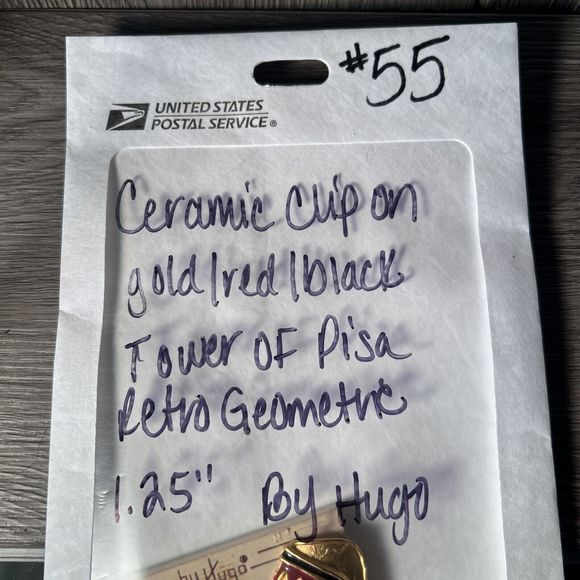 #55
UNITED STATES
POSTAL SERVICE®
Ceramic Clip on
gold/red/black
Tower of Pisa
Retro Geometric
1.25" By Hugo
by Hugo